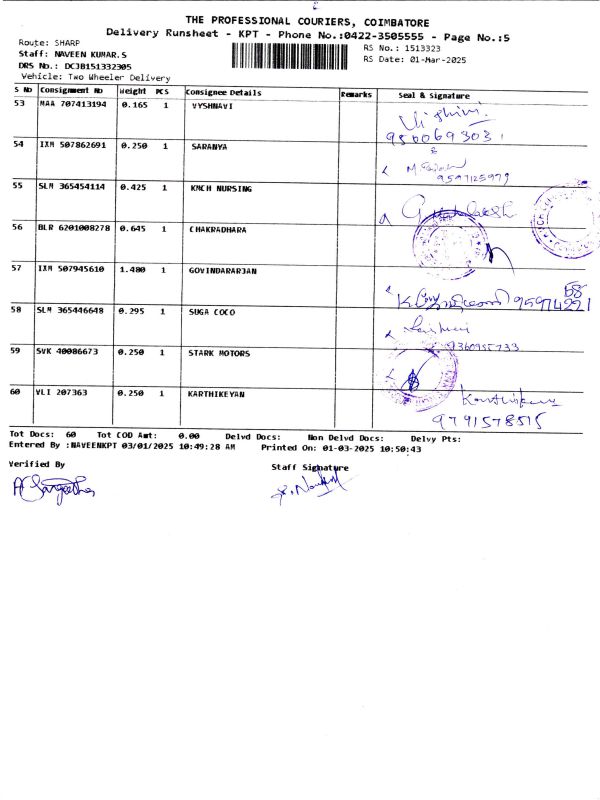 THE PROFESSIONAL COURIERS, COIMBATORE
Delivery Runsheet - KPT - Phone No.:0422-3505555 - Page No.:5
Route: SHARP
Staff: NAVEEN KUMAR.S
DRS No.: DCJB151332305
Vehicle: Two Wheeler Delivery
RS No.: 1513323
RS Date: 01-Mar-2025
S No Consignment No Weight PCS Consignee Details Remarks Seal & Signature
53 MAA 707413194 0.165 1 VYSHNAVI
54 IXM 507862691 0.250 1 SARANYA
9597125979
55 SLM 365454114 0.425 1 KMCH NURSING
56 BLR 6201008278 0.645 1 CHAKRADHARA
57 IXM 507945610 1.480 1 GOVINDARARJAN
58 SLM 365446648 0.295 1 SUGA COCO
9360955733
59 SVK 40086673 0.250 1 STARK MOTORS
60 VLI 207363 0.250 1 KARTHIKEYAN
9791578515
Tot Docs: 60 Tot COD Amt: 0.00 Delvd Docs: Non Delvd Docs: Delvy Pts:
Entered By :NAVEENKPT 03/01/2025 10:49:28 AM Printed On: 01-03-2025 10:50:43
Verified By
Staff Signature